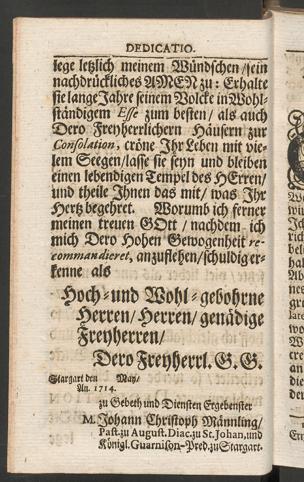 DEDICATIO.
lege letzlich meinem Wündschen/sein
nachdrückliches AMEN zu: Erhalte
sie lange Jahre seinem Volcke in Wohl-
ständigem Esse zum besten/ als auch
Dero Freyherrlichern Häusern zur
Consolation, cröne Ihr Leben mit vie-
lem Seegen/lasse sie seyn und bleiben
einen lebendigen Tempel des HErren/
und theile Ihnen das mit/ was Ihr
Hertz begehret. Worumb ich ferner
meinen treuen GOtt / nachdem ich
mich Dero Hohen Gewogenheit re-
commandieret, anzuflehen/schuldig er-
kenne als
Hoch- und Wohl-gebohrne
Herren/ Herren/ genädige
Freyherren/
Dero Freyherrl. G. G.
Stargart den May/
An. 1714.
zu Gebeth und Diensten Ergebenster
M. Johann Christoph Männling/
Past. zu August. Diac. zu St. Johan, und
Königl. Guarnison-Pred. zu Stargart.